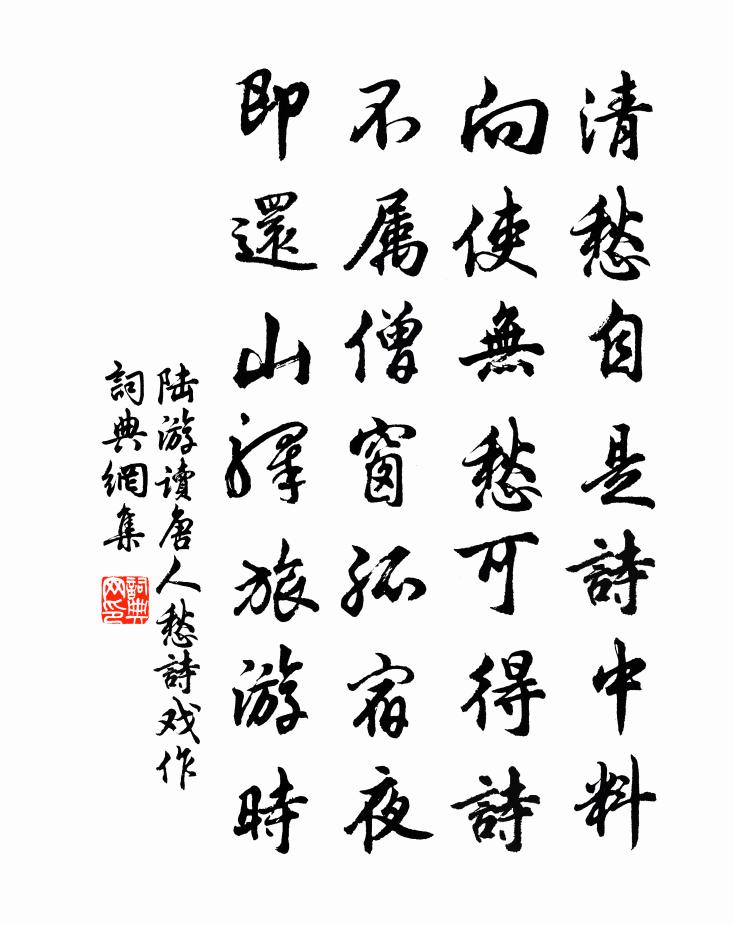 清愁自是詩中料
向使無愁可得詩
不属僧窗孤宿夜
即還山驛旅游時
陆游讀唐人愁詩戏作
詞典網集
詞典
网印